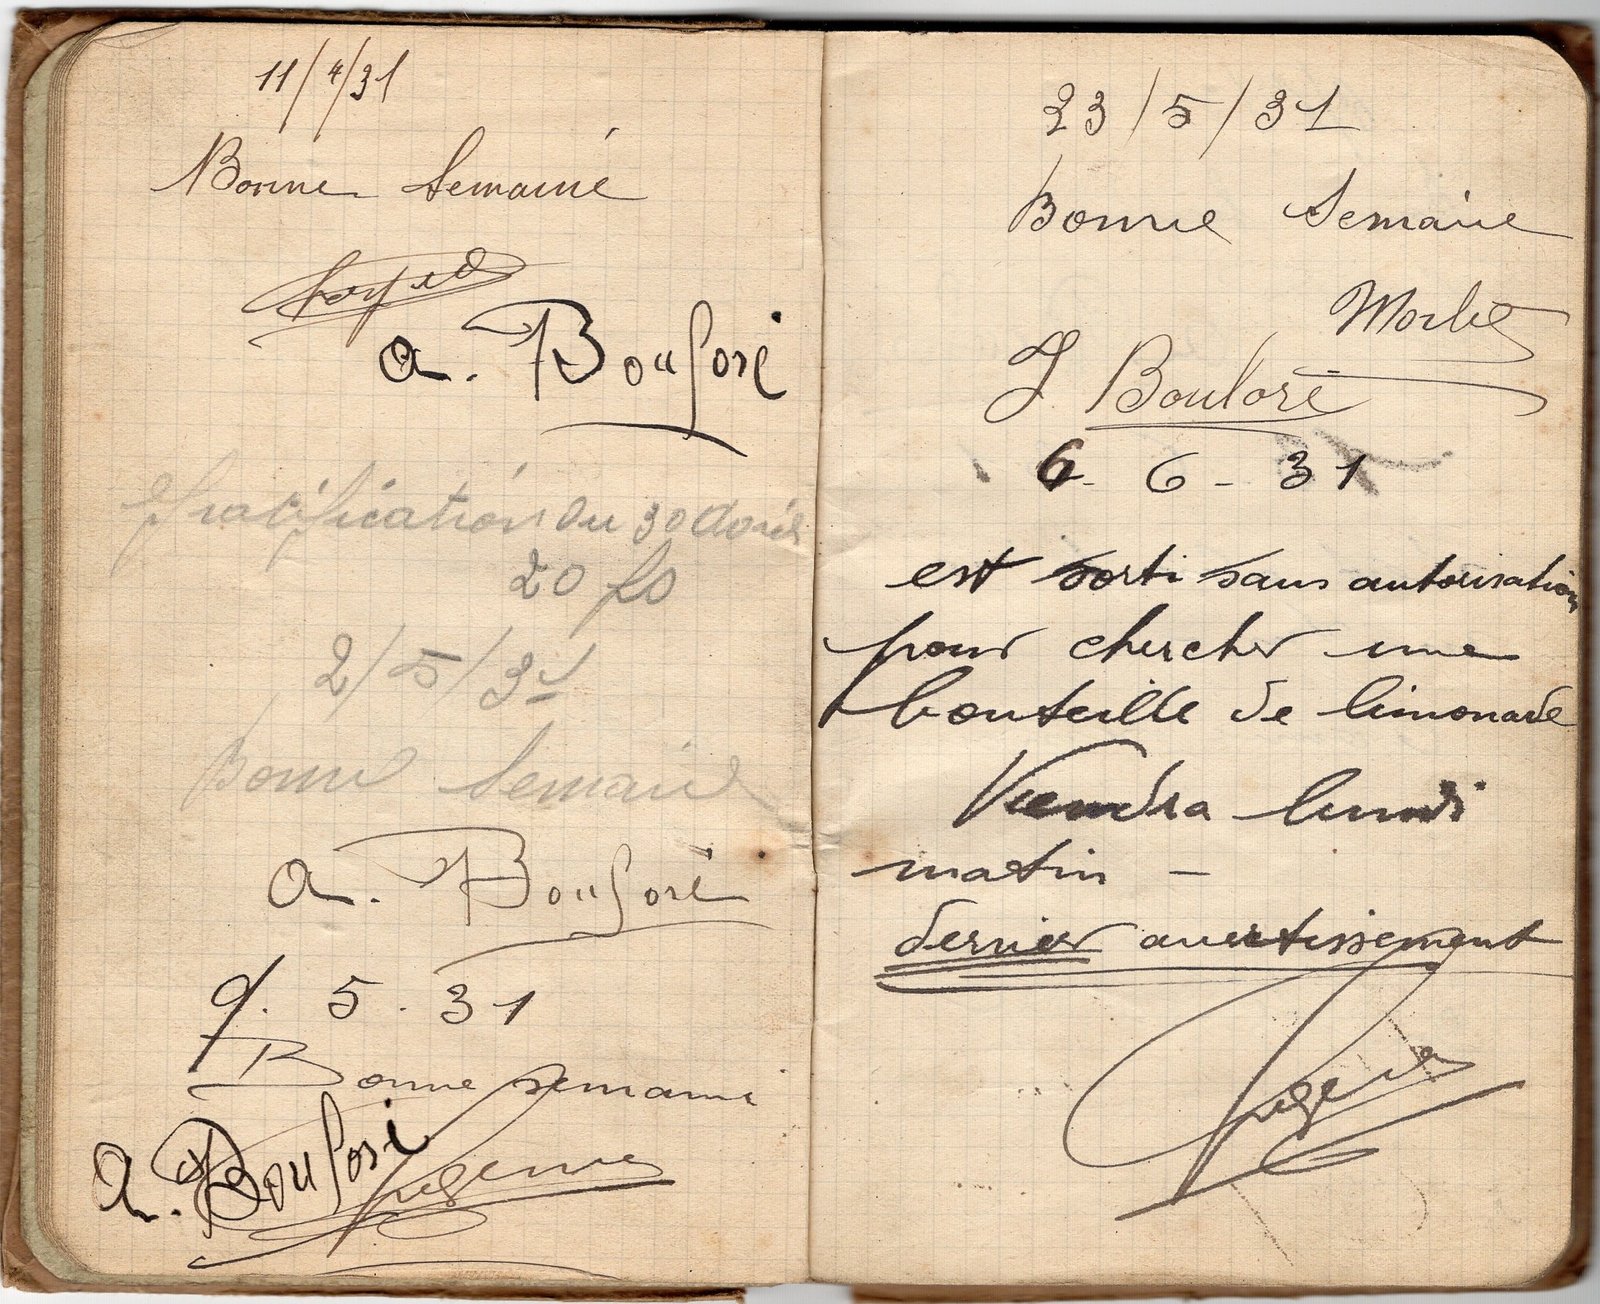 11/4/31
Bonne Semaine
a. Bouloré
Gratification du 30 Avril
20 fs
2/5/31
Bonne Semaine
a. Bouloré
9. 5. 31
Bonne semaine
a. Bouloré
23/5/31
Bonne Semaine
J. Bouloré
6 - 6 - 31
est sorti sans autorisation
pour chercher une
bouteille de limonade
Viendra lundi
matin -
dernier avertissement